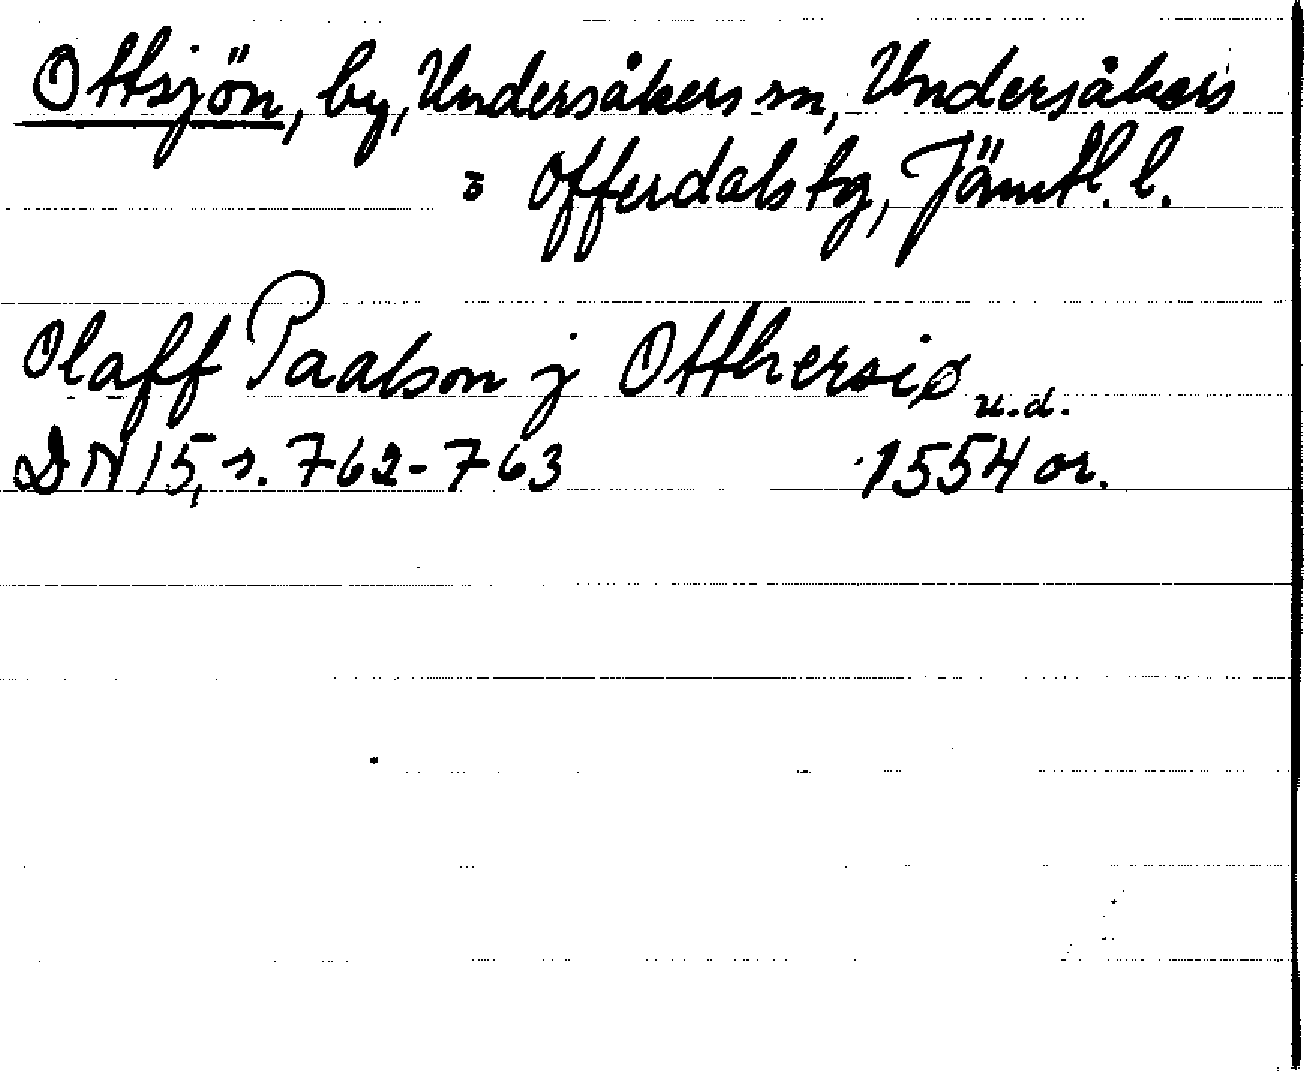 Ottsjön, by, Undersåkers sn, Undersåkers
o Offerdals tg, Jämtl. l.
Olaff Paalson j Otthersiø
u.d.
DN 15, s. 762-763 1554 or.